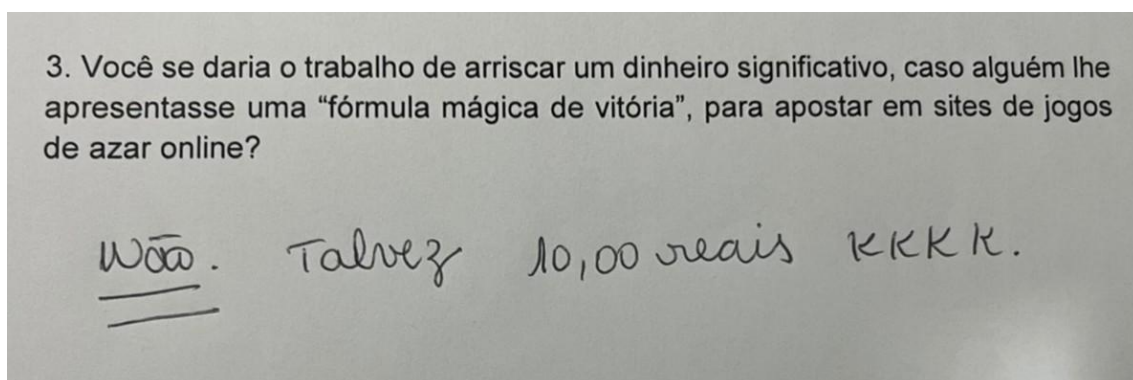 3. Você se daria o trabalho de arriscar um dinheiro significativo, caso alguém lhe
apresentasse uma “fórmula mágica de vitória”, para apostar em sites de jogos
de azar online?
Não. Talvez 10,00 reais KKKK.